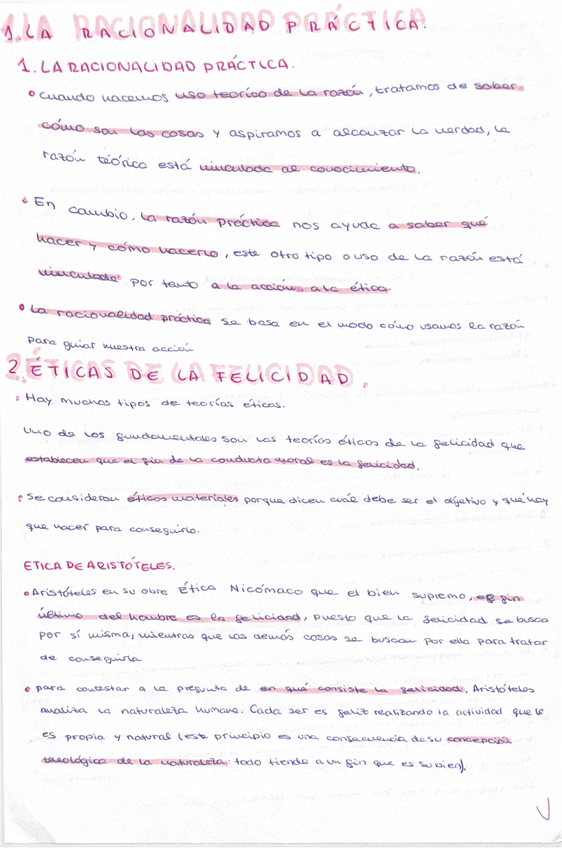 1. LA RACIONALIDAD PRÁCTICA.
1. LA RACIONALIDAD PRÁCTICA.
• Cuando hacemos uso teórico de la razón, tratamos de saber
cómo son las cosas y aspiramos a alcanzar la verdad, la
razón teórica está vinculada al conocimiento.
• En cambio, la razón práctica nos ayuda a saber qué
hacer y cómo hacerlo, este otro tipo o uso de la razón está
vinculado por tanto a la acción, a la ética.
• La racionalidad práctica se basa en el modo cómo usamos la razón
para guiar nuestra acción
2. ÉTICAS DE LA FELICIDAD.
• Hay muchos tipos de teorías éticas.
Uno de los fundamentales son las teorías éticas de la felicidad que
establecen que el fin de la conducta moral es la felicidad.
• Se consideran éticas materiales porque dicen cuál debe ser el objetivo y qué hay
que hacer para conseguirlo.
ETICA DE ARISTÓTELES.
• Aristóteles en su obra Ética Nicómaco que el bien supremo, el fin
último del hombre es la felicidad, puesto que la felicidad se busca
por sí misma, mientras que las demás cosas se buscan por ella para tratar
de conseguirla
• para contestar a la pregunta de en qué consiste la felicidad, Aristóteles
analiza la naturaleza humana. Cada ser es feliz realizando la actividad que le
es propia y natural (este principio es una consecuencia de su concepción
teleológica de la naturaleza: todo tiende a un fin que es su bien).